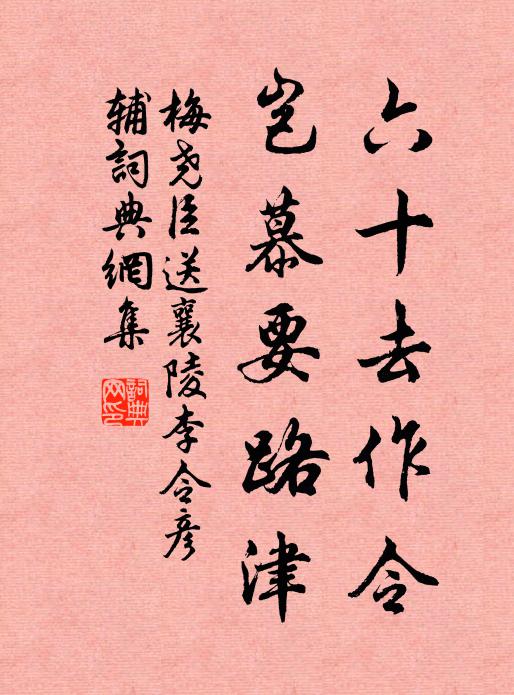 六十去作令
岂慕要路津
梅尧臣送襄陵李令彦
辅詞典網集
詞典网印